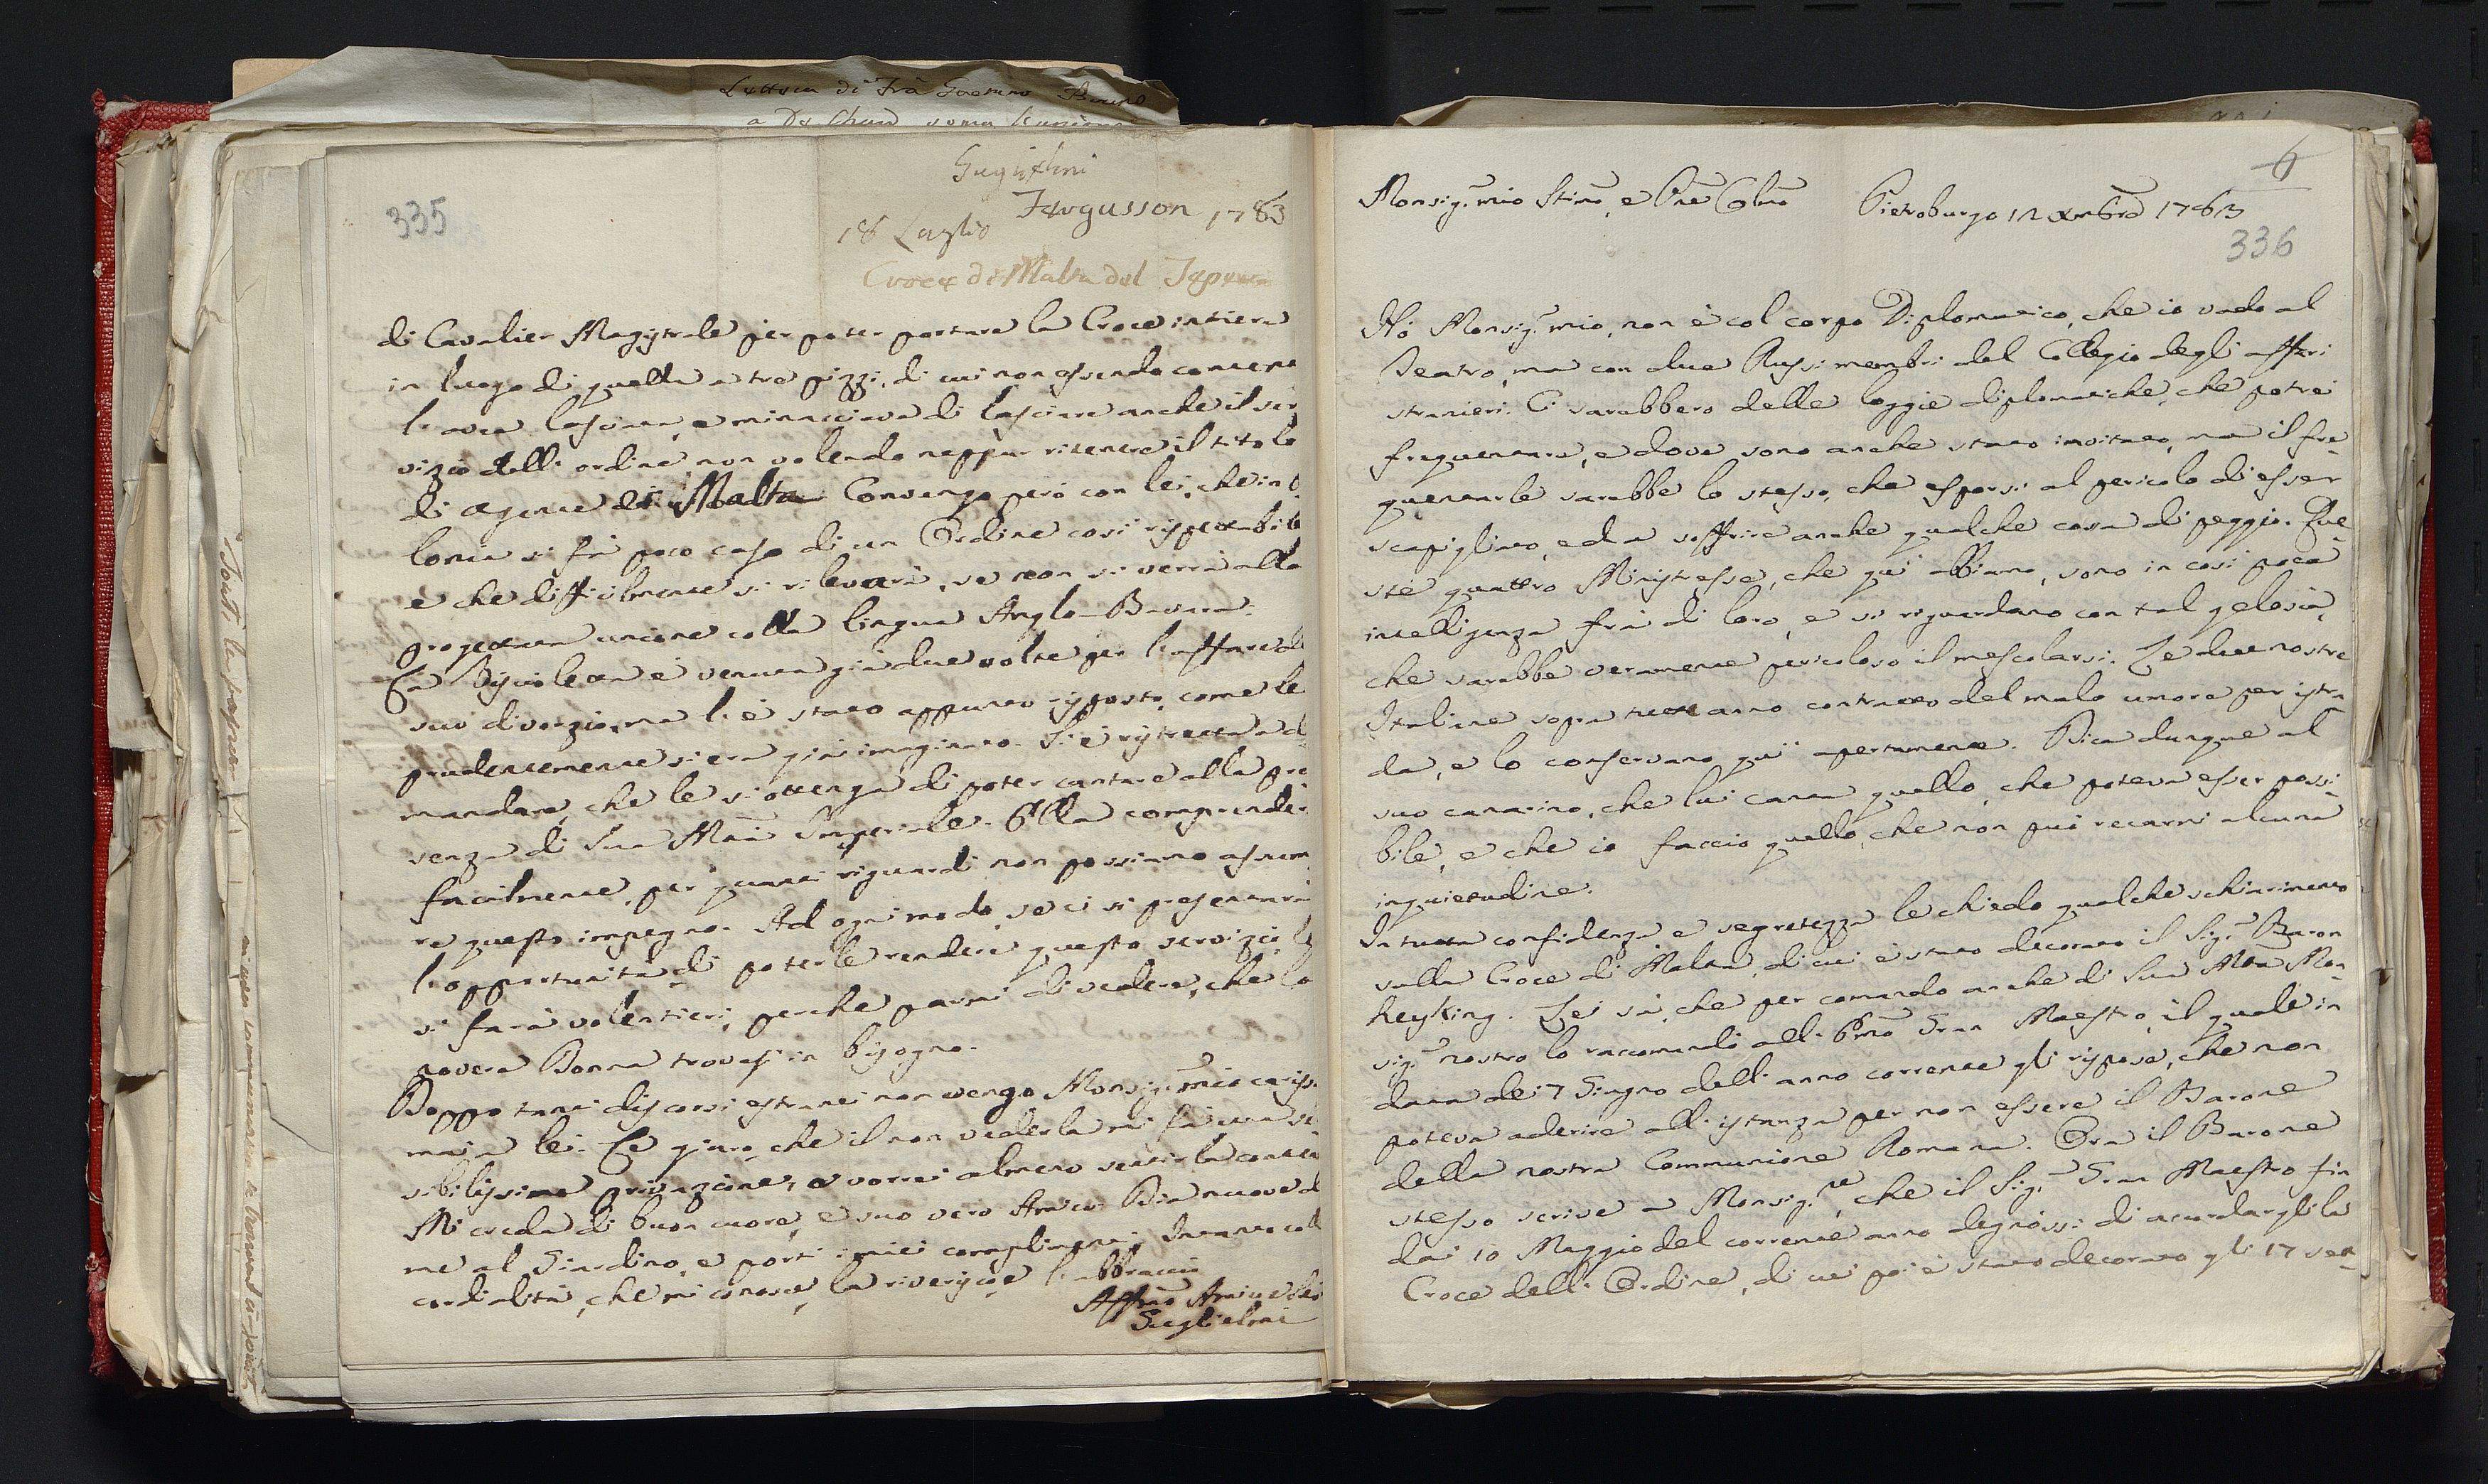 Lettera di Frà Gaetano Bruno
a De
335
Guglielmi
Fergusson 1783
18 Luglio
Croce di Malta del
di Cavalier Magistrale per poter portare la Croce intiera
in luogo di quella a tre pizzi, di cui non essendo contento
l'avea lasciata, e minacciava di lasciare anche il ser
vizio dell'ordine non volendo neppur ritenere il titolo
di Agente di Malta. Convengo però con lei, che in
lonia si fà poco caso di un Ordine così rispettabile
e che difficilmente si rileverà, se non si verrà alla
progettata unione colla lingua Anglo-Bavara.
La è venuta già due volte per l'affare del
suo divorzio, ma l'è stato appunto risposto, come le
prudentemente si era già imaginato. Si è ristretta a di
mandare, che le si ottenga di poter cantare alla pre
senza di Sua Mtà Imperiale. Ella comprender
facilmente, per quanti riguardi non possiamo assum
re questo impegno. Ad ogni modo, se ci si presentarà
l'opportunità di poterle rendere questo servizio,
si farà volentieri, perche parmi di vedere, che la
povera Donna trovasi in bisogno.
Doppo tanti discorsi estranei non vengo Monsig.r mio cariss.
mai a lei. Le giuro, che il non vederla mi fà una
sibilissima privazione, e vorrei almeno sentirla
Mi creda di buon cuore, e suo vero Amico. Dia nuove di
me al Giardino, e porti i miei complimenti. Intanto coll
cordialità, che mi conosce, la riverisco, e l'abbraccio
Affmo Amico
Guglielmi
6
Monsig.r mio Stimo, e Pne Colmo Pietroburgo 12 Xmbre 1783
336
Nò Monsig.r mio, non è col corpo Diplomatico, che io vado al
Teatro, ma con due Russi membri del Collegio degli affari
stranieri. Ci sarebbero delle loggie diplomatiche, che potrei
frequentare, e dove sono anche stato invitato, ma il fre
quentarle sarebbe lo stesso, che esporsi al pericolo di esser
scapigliato, ed a soffrire anche qualche cosa di peggio. Que
ste quattro Ministresse, che quì abbiamo, sono in così poca
intelligenza frà di loro, e si riguardano con tal gelosia,
che sarebbe veramente pericoloso il mescolarsi. Le due nostre
Italiane sopra tutte anno contratto del malo umore per istra
da, e lo conservano quì apertamente. Dica dunque al
suo canarino, che lui canta quello, che poteva esser possi
bile, e che io faccio quello, che non può recarmi alcuna
inquietudine.
In tutta confidenza e segretezza le chiedo qualche schiarimento
sulla Croce di Malta, di cui è stato decorato il Sig.r Baron
Heyking. Lei sà, che per comando anche di Sua Altza Mon
sig.r nostro lo raccomandò all'Emo Gran Maestro, il quale in
data de 7 Giugno dell'anno corrente gli rispose, che non
poteva aderire all'istanza per non essere il Barone
della nostra Communione Romana. Ora il Barone
stesso scrive a Monsig.re che il Sig.r Gran Maestro fin
dai 10 Maggio del corrente anno degnossi di accordargli la
Croce dell'Ordine, di cui poi è stato decorato gli 17